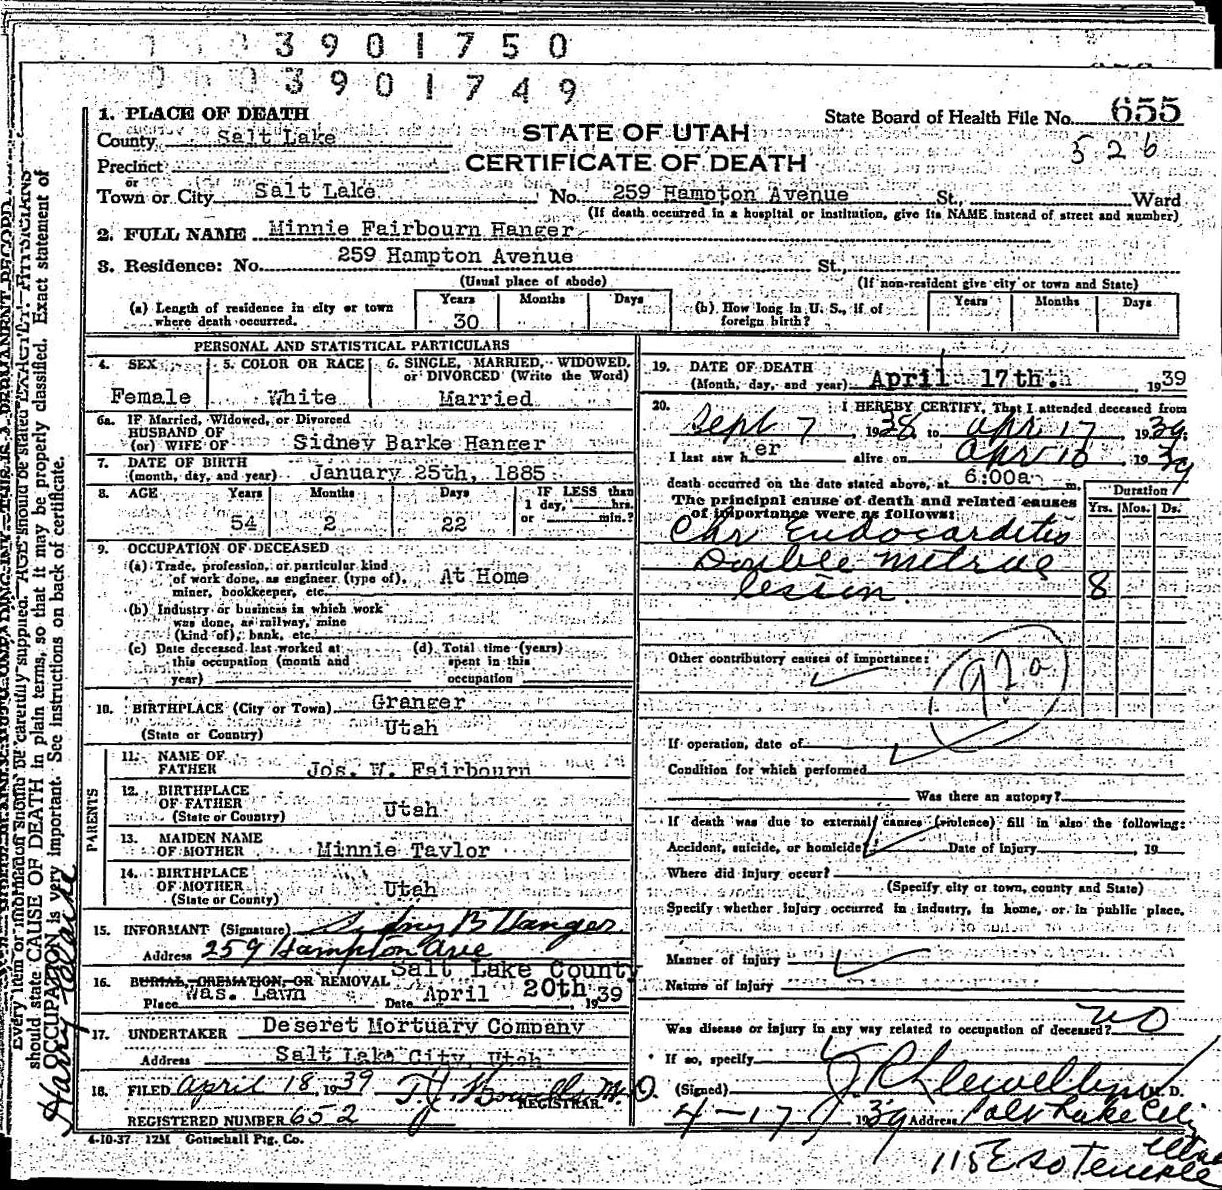 3901750
3901749
1. PLACE OF DEATH
County Salt Lake
Precinct
or
Town or City Salt Lake No. 259 Hampton Avenue St., Ward
(If death occurred in a hospital or institution, give its NAME instead of street and number)
STATE OF UTAH
CERTIFICATE OF DEATH
State Board of Health File No. 655
526
2. FULL NAME Minnie Fairbourn Hanger
3. Residence: No. 259 Hampton Avenue St.,
(Usual place of abode) (If non-resident give city or town and State)
(a) Length of residence in city or town where death occurred. Years 30 Months Days
(b) How long in U. S., if of foreign birth? Years Months Days
PERSONAL AND STATISTICAL PARTICULARS
4. SEX Female
5. COLOR OR RACE White
6. SINGLE, MARRIED, WIDOWED, or DIVORCED (Write the Word) Married
6a. IF Married, Widowed, or Divorced
HUSBAND OF
(or) WIFE OF Sidney Barke Hanger
7. DATE OF BIRTH
(month, day, and year) January 25th, 1885
8. AGE Years 54 Months 2 Days 22 IF LESS than 1 day, hrs. or min.?
9. OCCUPATION OF DECEASED
(a) Trade, profession, or particular kind
of work done, as engineer (type of),
miner, bookkeeper, etc. At Home
(b) Industry or business in which work
was done, as railway, mine
(kind of), bank, etc.
(c) Date deceased last worked at
this occupation (month and
year)
(d) Total time (years)
spent in this
occupation
10. BIRTHPLACE (City or Town) Granger
(State or Country) Utah
PARENTS
11. NAME OF
FATHER Jos. W. Fairbourn
12. BIRTHPLACE
OF FATHER
(State or Country) Utah
13. MAIDEN NAME
OF MOTHER Minnie Taylor
14. BIRTHPLACE
OF MOTHER
(State or Country) Utah
15. INFORMANT (Signature) Sydney B Hanger
Address 259 Hampton Ave
16. BURIAL, CREMATION, OR REMOVAL Salt Lake County
Place Was. Lawn Date April 20th 1939
17. UNDERTAKER Deseret Mortuary Company
Address Salt Lake City, Utah
18. FILED April 18, 1939 M.D.
REGISTRAR.
REGISTERED NUMBER 652
4-10-37 12M Gottschall Ptg. Co.
19. DATE OF DEATH
(Month, day, and year) April 17th. 1939
20. I HEREBY CERTIFY, That I attended deceased from
Sept 7, 1938, to Apr 17, 1939;
I last saw her alive on Apr 16 1939
death occurred on the date stated above, at 6:00a m.
The principal cause of death and related causes
of importance were as follows:
Duration
Yrs. Mos. Ds.
Chr Endocarditis
Double Mitral
lesion. 8
Other contributory causes of importance:
92a
If operation, date of
Condition for which performed
Was there an autopsy?
If death was due to external causes (violence) fill in also the following:
Accident, suicide, or homicide Date of injury , 19
Where did injury occur?
(Specify city or town, county and State)
Specify whether injury occurred in industry, in home, or in public place.
Manner of injury
Nature of injury
Was disease or injury in any way related to occupation of deceased? no
If so, specify
(Signed) J R Llewellyn M. D.
4-17 1939 Address Salt Lake City
Utah
115 E So Temple
should state CAUSE OF DEATH in plain terms, so that it may be properly classified. Exact statement of
OCCUPATION is very important. See instructions on back of certificate.